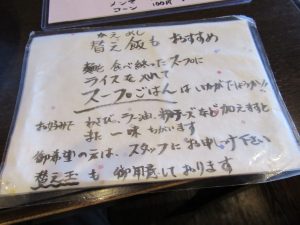 コーン 100円
かえ めし
替え飯も おすすめ
麺を食べ終ったスープに
ライスを入れて
スープごはんはいかがでしょうか!!
お好みで わさび、ラー油、粉チーズなど加えますと
また一味ちがいます
御希望の方は、スタッフにお申し付け下さい
替え玉も御用意しております